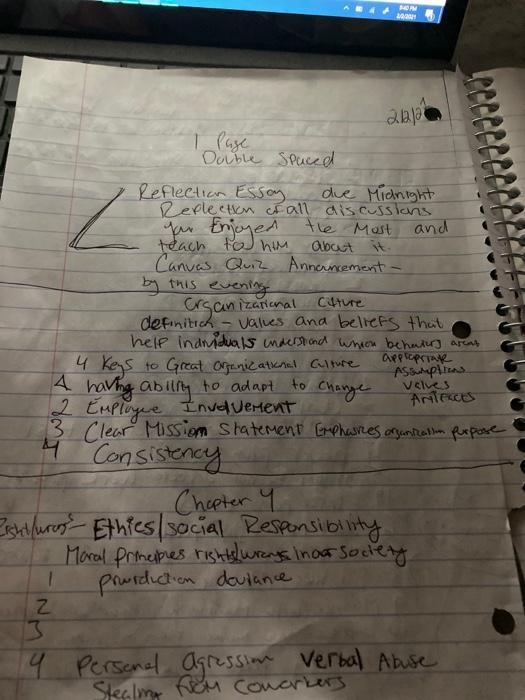 5:40 PM
2/2/2021
2/2/21
1 Page
Double Spaced
Reflection Essay due Midnight
Reflection of all discussions
you Enjoyed the Most and
teach to him about it.
Canvas Quiz Announcement -
by this evening
Organizational Culture
definition - Values and beliefs that
help individuals understand which behaviors are
appropriate
4 Keys to Great Organizational Culture
Assumptions
Values
Artifacts
1 having ability to adapt to change
2 Employee Involvement
3 Clear Mission Statement Emphasizes organization purpose
4 Consistency
Chapter 4
Right/wrongs - Ethics/social Responsibility
Moral Principles rights/wrongs in our society
1 deviance
2
3
4 Personal Agression Verbal Abuse
Stealing from coworkers